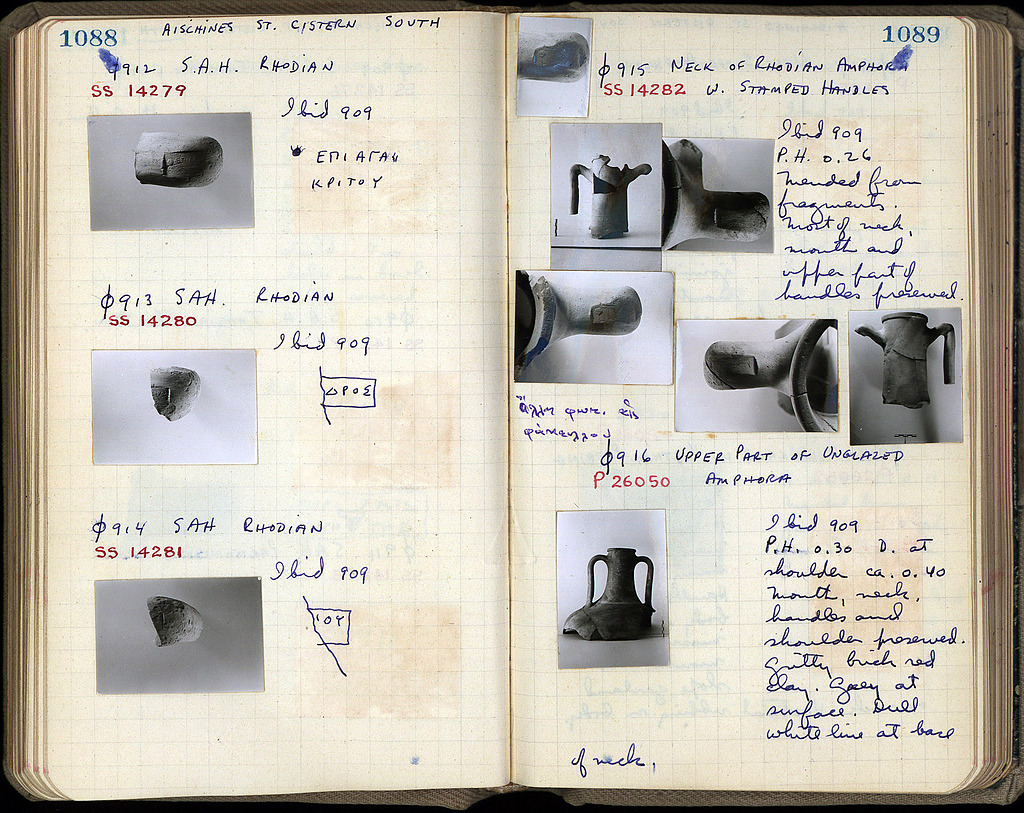 1088
AISCHINES ST. CISTERN SOUTH
φ912 S.A.H. RHODIAN
SS 14279
Ibid 909
ΕΠΙ ΑΓΑΝ
ΚΡΙΤΟΥ
φ913 SAH. RHODIAN
SS 14280
Ibid 909
ΔΡΟΣ
φ914 SAH RHODIAN
SS 14281
Ibid 909
ΙΟΥ
1089
φ915 NECK OF RHODIAN AMPHORA
SS 14282 W. STAMPED HANDLES
Ibid 909
P.H. 0.26
Mended from
fragments.
Most of neck,
mouth and
upper part of
handles preserved.
φ916 UPPER PART OF UNGLAZED
P 26050 AMPHORA
Ibid 909
P.H. 0.30 D. at
shoulder ca. 0.40
Mouth, neck,
handles and
shoulder preserved.
Gritty brick red
clay. Grey at
surface. Dull
white line at base
of neck.